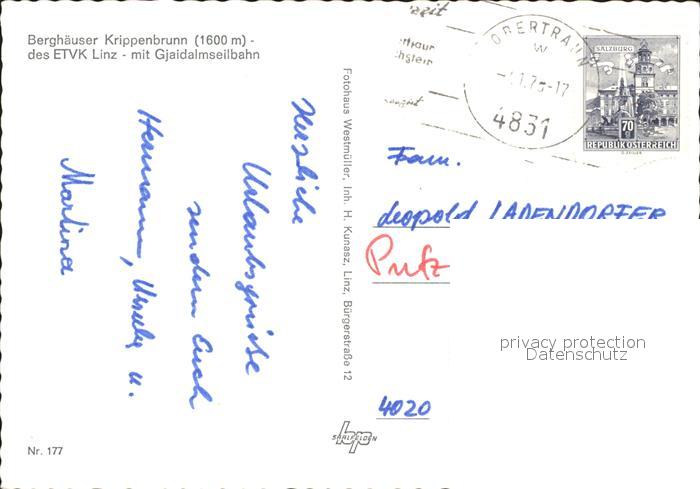 Berghäuser Krippenbrunn (1600 m) -
des ETVK Linz - mit Gjaidalmseilbahn
Herzliche
Urlaubsgrüsse
senden Euch
Hermann, Ursula u.
Martina
Nr. 177
Fotohaus Westmüller, Inh. H. Kunasz, Linz, Bürgerstraße 12
bp
SAALFELDEN
OBERTRAUN
4831
SALZBURG
70
REPUBLIK ÖSTERREICH
Fam.
Leopold LADENDORFER
Putz
4020
privacy protection
Datenschutz